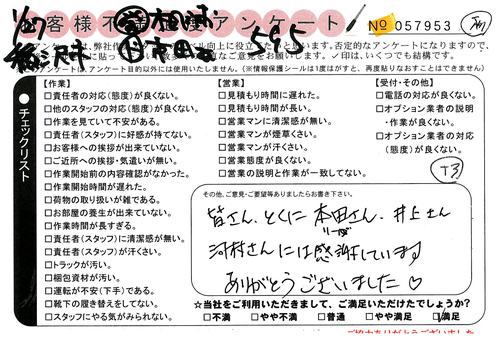 お客様不満足度アンケート
No 057953
595
✓印は、いくつでも結構です。
本アンケートは、アンケート目的以外には使用いたしません。(※情報保護シールは1度はがすと、再度貼りなおすことはできません)
チェックリスト
【作業】
□責任者の対応(態度)が良くない。
□他のスタッフの対応(態度)が良くない。
□作業を見ていて不安がある。
□責任者(スタッフ)に好感が持てない。
□お客様への挨拶が出来ていない。
□ご近所への挨拶・気遣いが無い。
□作業開始前の内容確認がなかった。
□作業開始時間が遅れた。
□荷物の取り扱いが雑である。
□お部屋の養生が出来ていない。
□作業時間が長すぎる。
□責任者(スタッフ)に清潔感が無い。
□責任者(スタッフ)が汗くさい。
□トラックが汚い。
□梱包資材が汚い。
□運転が不安(下手)である。
□靴下の履き替えをしてない。
□スタッフにやる気がみられない。
【営業】
□見積もり時間に遅れた。
□見積もり時間が長い。
□営業マンに清潔感が無い。
□営業マンが煙草くさい。
□営業マンが汗くさい。
□営業態度が良くない。
□営業の説明と作業が一致してない。
【受付・その他】
□電話の対応が良くない。
□オプション業者の説明
・作業が良くない。
□オプション業者の対応
(態度)が良くない。
+3
その他、ご意見・ご要望等ありましたらお書き下さい。
皆さん、とくに 本田さん、井上さん
リーダー
河村さんには感謝しています
ありがとうございました♡
☆当社をご利用いただきまして、ご満足いただけたでしょうか?
□不満 □やや不満 □普通 □やや満足 ☑満足
ご協力ありがとうございました